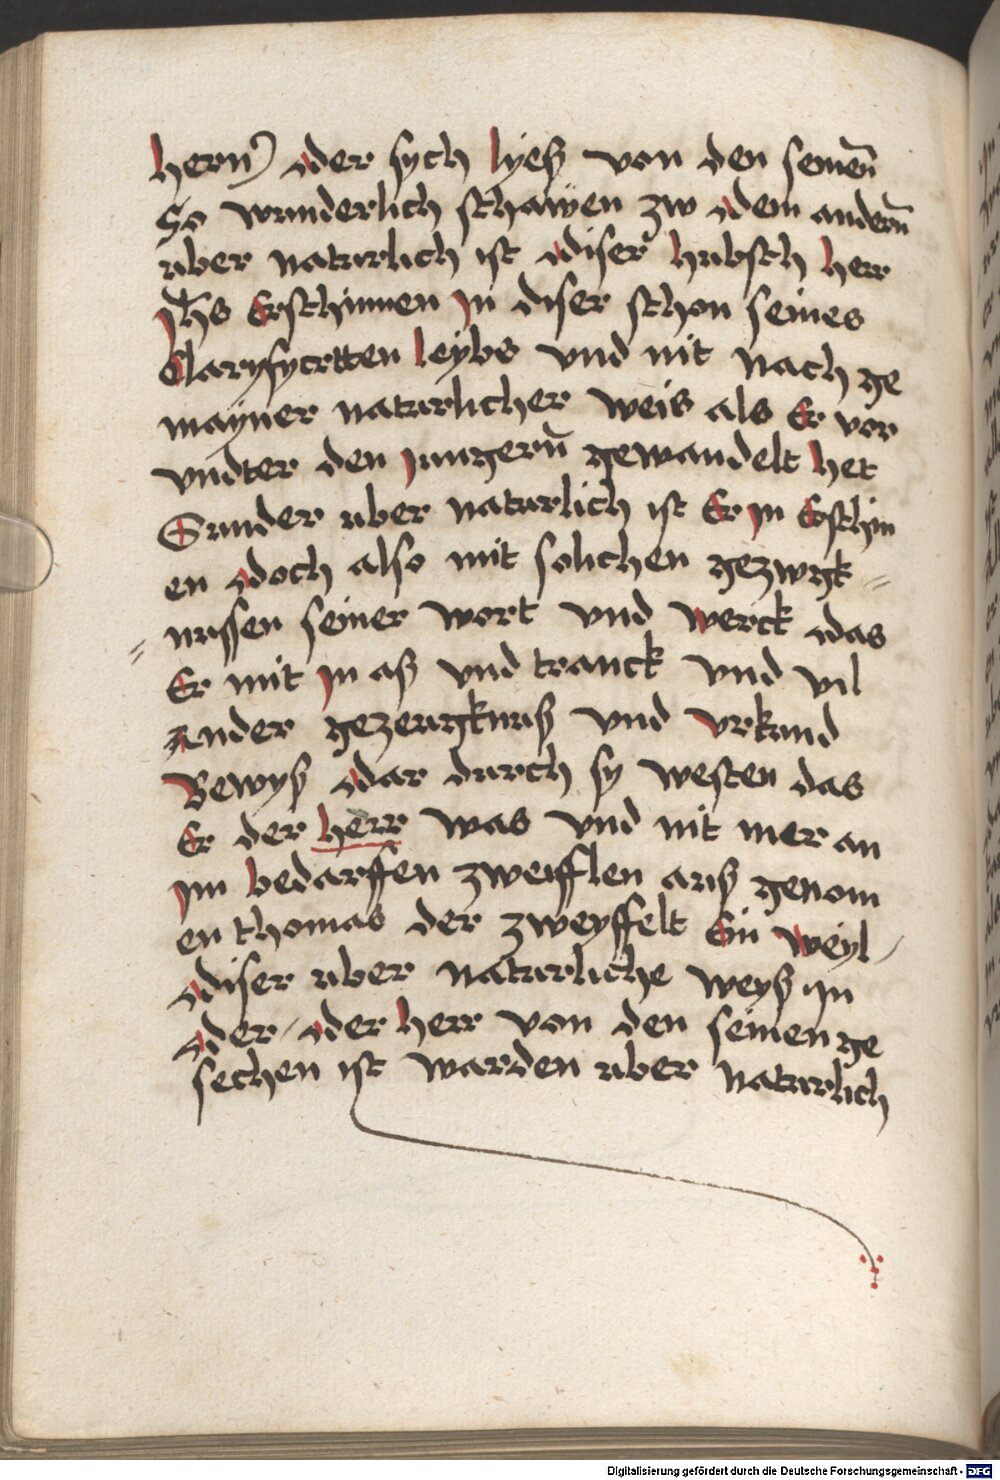 hern) der sych lyeß von den seinen̄
So wunderlich schawen zw dem andern̄
uber naturlich ist diser hubsch herr
Jh̄s Erschinnen Jn diser schon seines
Claryfycrtten leybs vnd nit nach ge
mayner naturlicher weis als Er vor
vndter den Jungern̄ gewandelt het
Sunder uber naturlich ist Er Jn Erschin
en doch also mit solichen gezwgk=
nussen seiner wort vnd werck das
Er mit Jn aß vnd tranck vnd vil
Ander gezeugknuß vnd vrkund
Bewyß dar durch sy westen das
Er der herr was vnd nit mer an
Jm bedarffen zweifflen auß genom
en thomas der zweyffelt Ein weyl /
diser uber naturliche weyß Jn
der / der herr von den seinen ge
sechen ist warden uber naturlich
Digitalisierung gefördert durch die Deutsche Forschungsgemeinschaft - DFG